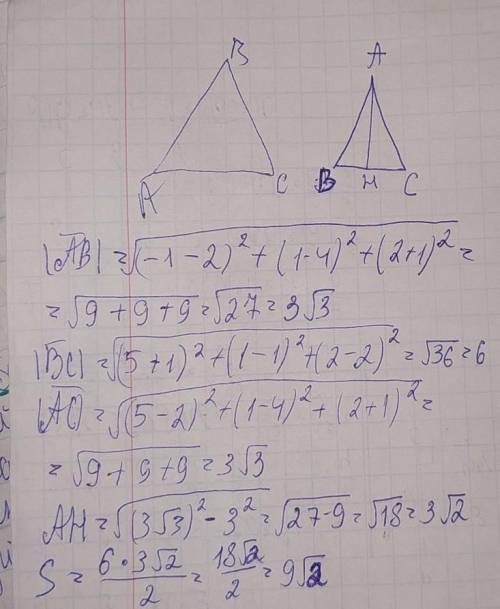 B A
A C B H C
|AB| = √(-1-2)² + (1-4)² + (2+1)² =
= √9+9+9 = √27 = 3√3
|BC| = √(5+1)² + (1-1)² + (2-2)² = √36 = 6
|AC| = √(5-2)² + (1-4)² + (2+1)² =
= √9+9+9 = 3√3
AH = √(3√3)² - 3² = √27-9 = √18 = 3√2
S = 6·3√2/2 = 18√2/2 = 9√2